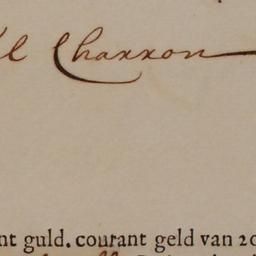 l Charron
nt guld. courant geld van 20